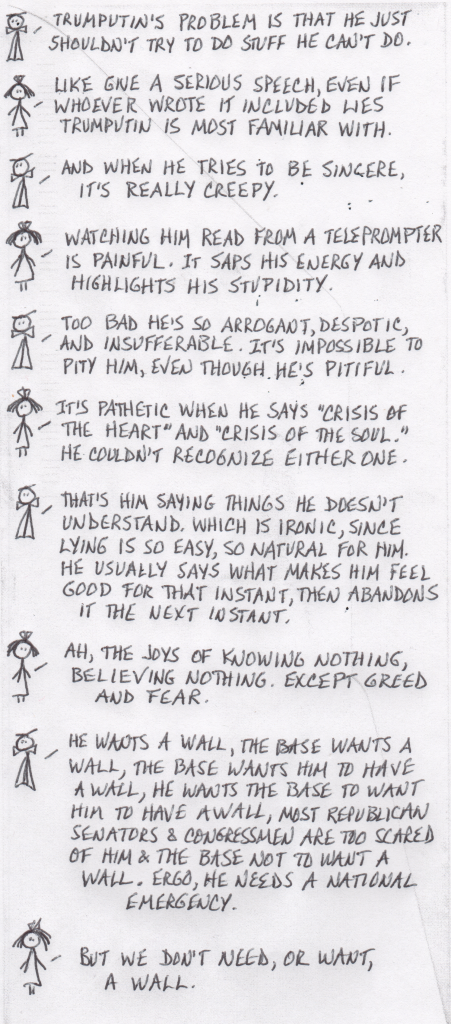 TRUMPUTIN'S PROBLEM IS THAT HE JUST
SHOULDN'T TRY TO DO STUFF HE CAN'T DO.
LIKE GIVE A SERIOUS SPEECH, EVEN IF
WHOEVER WROTE IT INCLUDED LIES
TRUMPUTIN IS MOST FAMILIAR WITH.
AND WHEN HE TRIES TO BE SINCERE,
IT'S REALLY CREEPY.
WATCHING HIM READ FROM A TELEPROMPTER
IS PAINFUL. IT SAPS HIS ENERGY AND
HIGHLIGHTS HIS STUPIDITY.
TOO BAD HE'S SO ARROGANT, DESPOTIC,
AND INSUFFERABLE. IT'S IMPOSSIBLE TO
PITY HIM, EVEN THOUGH HE'S PITIFUL.
IT'S PATHETIC WHEN HE SAYS "CRISIS OF
THE HEART" AND "CRISIS OF THE SOUL."
HE COULDN'T RECOGNIZE EITHER ONE.
THAT'S HIM SAYING THINGS HE DOESN'T
UNDERSTAND. WHICH IS IRONIC, SINCE
LYING IS SO EASY, SO NATURAL FOR HIM.
HE USUALLY SAYS WHAT MAKES HIM FEEL
GOOD FOR THAT INSTANT, THEN ABANDONS
IT THE NEXT INSTANT.
AH, THE JOYS OF KNOWING NOTHING,
BELIEVING NOTHING. EXCEPT GREED
AND FEAR.
HE WANTS A WALL, THE BASE WANTS A
WALL, THE BASE WANTS HIM TO HAVE
A WALL, HE WANTS THE BASE TO WANT
HIM TO HAVE A WALL, MOST REPUBLICAN
SENATORS & CONGRESSMEN ARE TOO SCARED
OF HIM & THE BASE NOT TO WANT A
WALL. ERGO, HE NEEDS A NATIONAL
EMERGENCY.
BUT WE DON'T NEED, OR WANT,
A WALL.